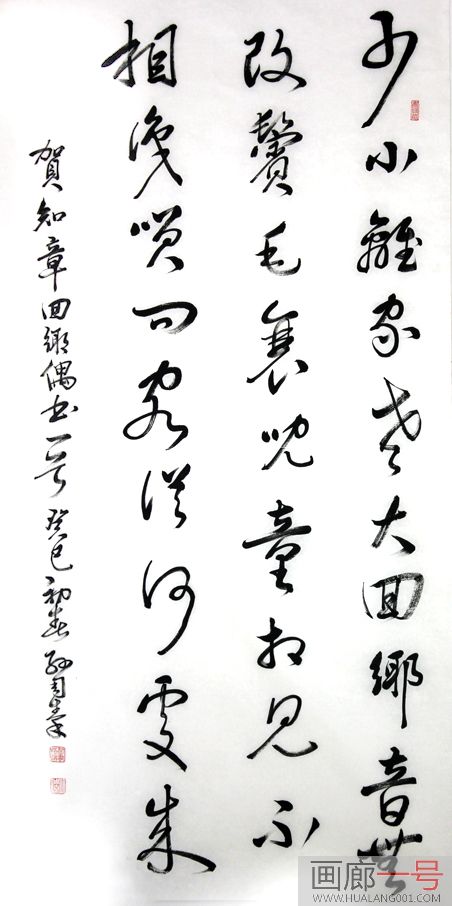 少小離家老大回鄉音無
改鬢毛衰兒童相見不
相識咲問客從何處來
賀知章回鄉偶書一首 癸巳初春
画廊一号
WWW.HUALANG001.COM